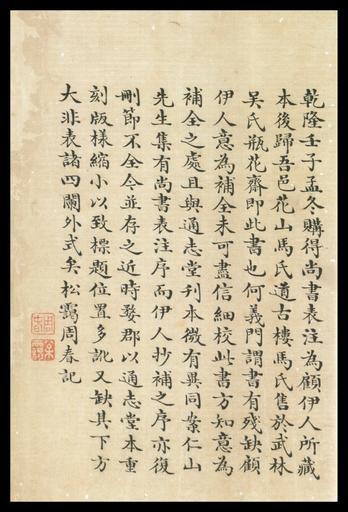 乾隆壬子孟冬購得尚書表注為顧伊人所藏
本後歸吾邑花山馬氏道古樓馬氏售於武林
吳氏瓶花齋即此書也何義門謂書有殘缺顧
伊人意為補全未可盡信細校此書方知意為
補全之處且與通志堂刊本微有異同案仁山
先生集有尚書表注序而伊人抄補之序亦復
刪節不全今並存之近時婺郡以通志堂本重
刻版樣縮小以致標題位置多訛又缺其下方
大非表諸四闌外式矣松靄周春記
周春